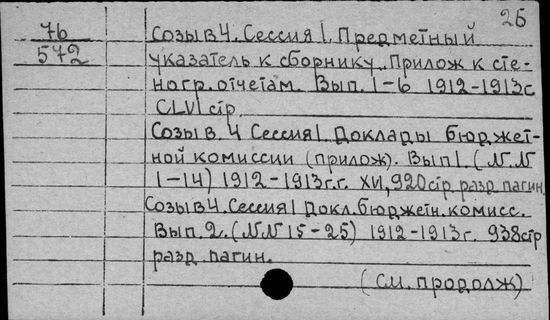 26
76
572
Созыв 4. Сессия 1. Предметный
указатель к сборнику. Прилож к сте-
ногр. отчетам. Вып. 1-6 1912-1913с
CLVI стр.
Созыв. 4 Сессия 1. Доклады бюджет-
ной комиссии (прилож). Вып 1 (NN
1-14) 1912-1913г.г. XVI, 920стр разд пагин.
Созыв 4. Сессия 1 Докл. бюджетн. комисс.
Вып. 2. (NN 15-25) 1912-1913г. 938стр
разд пагин.
(см. продолж)